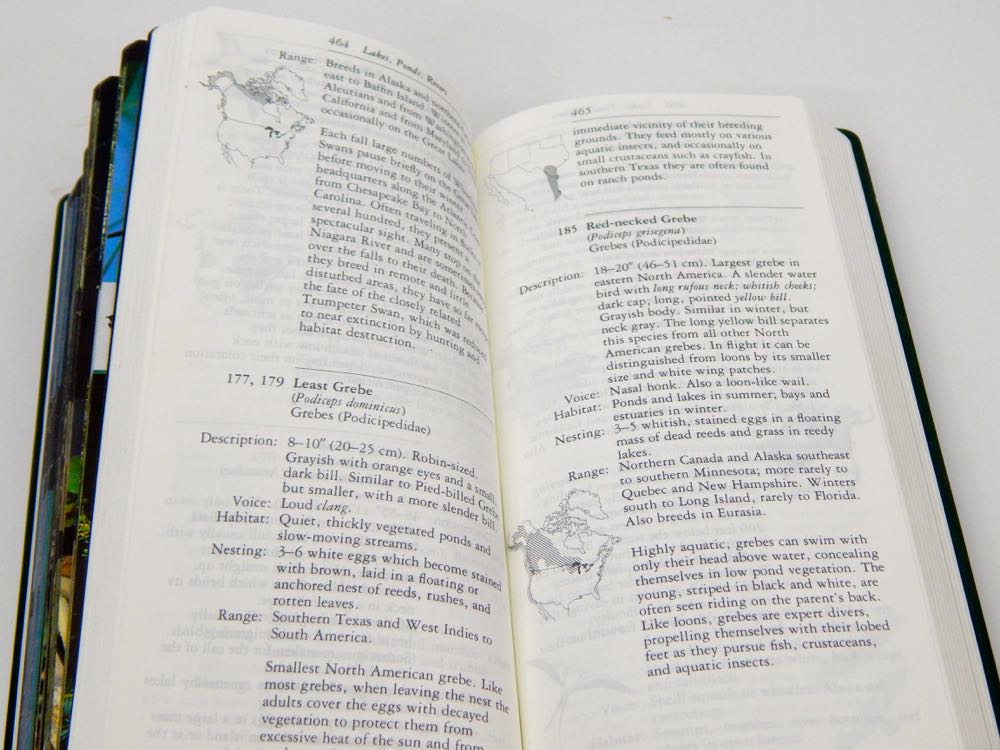 464 Lakes, Ponds, Rivers
Range: Breeds in Alaska and northern
east to Baffin Island. Winters
Aleutians and from Washington
California and from Maryland
occasionally on the Great Lakes.
Each fall large numbers of Whistling
Swans pause briefly on the Great
before moving to their winter
headquarters along the Atlantic Coast
from Chesapeake Bay to North
Carolina. Often traveling in flocks
several hundred, they present a
spectacular sight. Many stop on the
Niagara River and are sometimes
over the falls to their death. Because
they breed in remote and little
disturbed areas, they have so far
the fate of the closely related
Trumpeter Swan, which was reduced
to near extinction by hunting and
habitat destruction.
177, 179 Least Grebe
(Podiceps dominicus)
Grebes (Podicipedidae)
Description: 8–10" (20–25 cm). Robin-sized.
Grayish with orange eyes and a small,
dark bill. Similar to Pied-billed Grebe
but smaller, with a more slender bill.
Voice: Loud clang.
Habitat: Quiet, thickly vegetated ponds and
slow-moving streams.
Nesting: 3–6 white eggs which become stained
with brown, laid in a floating or
anchored nest of reeds, rushes, and
rotten leaves.
Range: Southern Texas and West Indies to
South America.
Smallest North American grebe. Like
most grebes, when leaving the nest the
adults cover the eggs with decayed
vegetation to protect them from
excessive heat of the sun and from
465
immediate vicinity of their breeding
grounds. They feed mostly on various
aquatic insects, and occasionally on
small crustaceans such as crayfish. In
southern Texas they are often found
on ranch ponds.
185 Red-necked Grebe
(Podiceps grisegena)
Grebes (Podicipedidae)
Description: 18–20" (46–51 cm). Largest grebe in
eastern North America. A slender water
bird with long rufous neck; whitish cheeks;
dark cap; long, pointed yellow bill.
Grayish body. Similar in winter, but
neck gray. The long yellow bill separates
this species from all other North
American grebes. In flight it can be
distinguished from loons by its smaller
size and white wing patches.
Voice: Nasal honk. Also a loon-like wail.
Habitat: Ponds and lakes in summer; bays and
estuaries in winter.
Nesting: 3–5 whitish, stained eggs in a floating
mass of dead reeds and grass in reedy
lakes.
Range: Northern Canada and Alaska southeast
to southern Minnesota; more rarely to
Quebec and New Hampshire. Winters
south to Long Island, rarely to Florida.
Also breeds in Eurasia.
Highly aquatic, grebes can swim with
only their head above water, concealing
themselves in low pond vegetation. The
young, striped in black and white, are
often seen riding on the parent's back.
Like loons, grebes are expert divers,
propelling themselves with their lobed
feet as they pursue fish, crustaceans,
and aquatic insects.